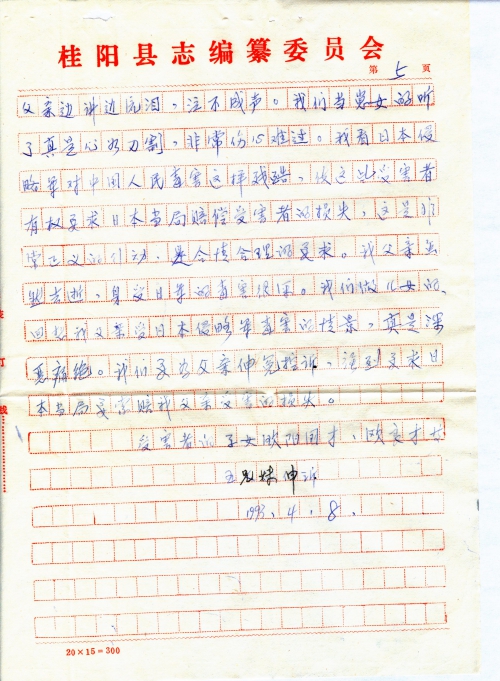 桂阳县志编纂委员会
第 5 页
父亲边讲边流泪，泣不成声。我们当儿女的听
了真是心如刀割，非常伤心难过。我看日本侵
略军对中国人民毒害这样残酷，使这些受害者
有权要求日本当局赔偿受害者的损失，这是非
常正义的行动，是合情合理的要求。我父亲虽
然去逝，身受日军的毒害很深。我们做儿女的，
回想我父亲受日本侵略军毒害的情景，真是深
恶痛绝。我们要为父亲伸冤控诉，强烈要求日
本当局要索赔我父亲受害的损失。
受害者的子女欧阳国才、欧
申诉
1993.4.8.
装
订
线
20×15=300